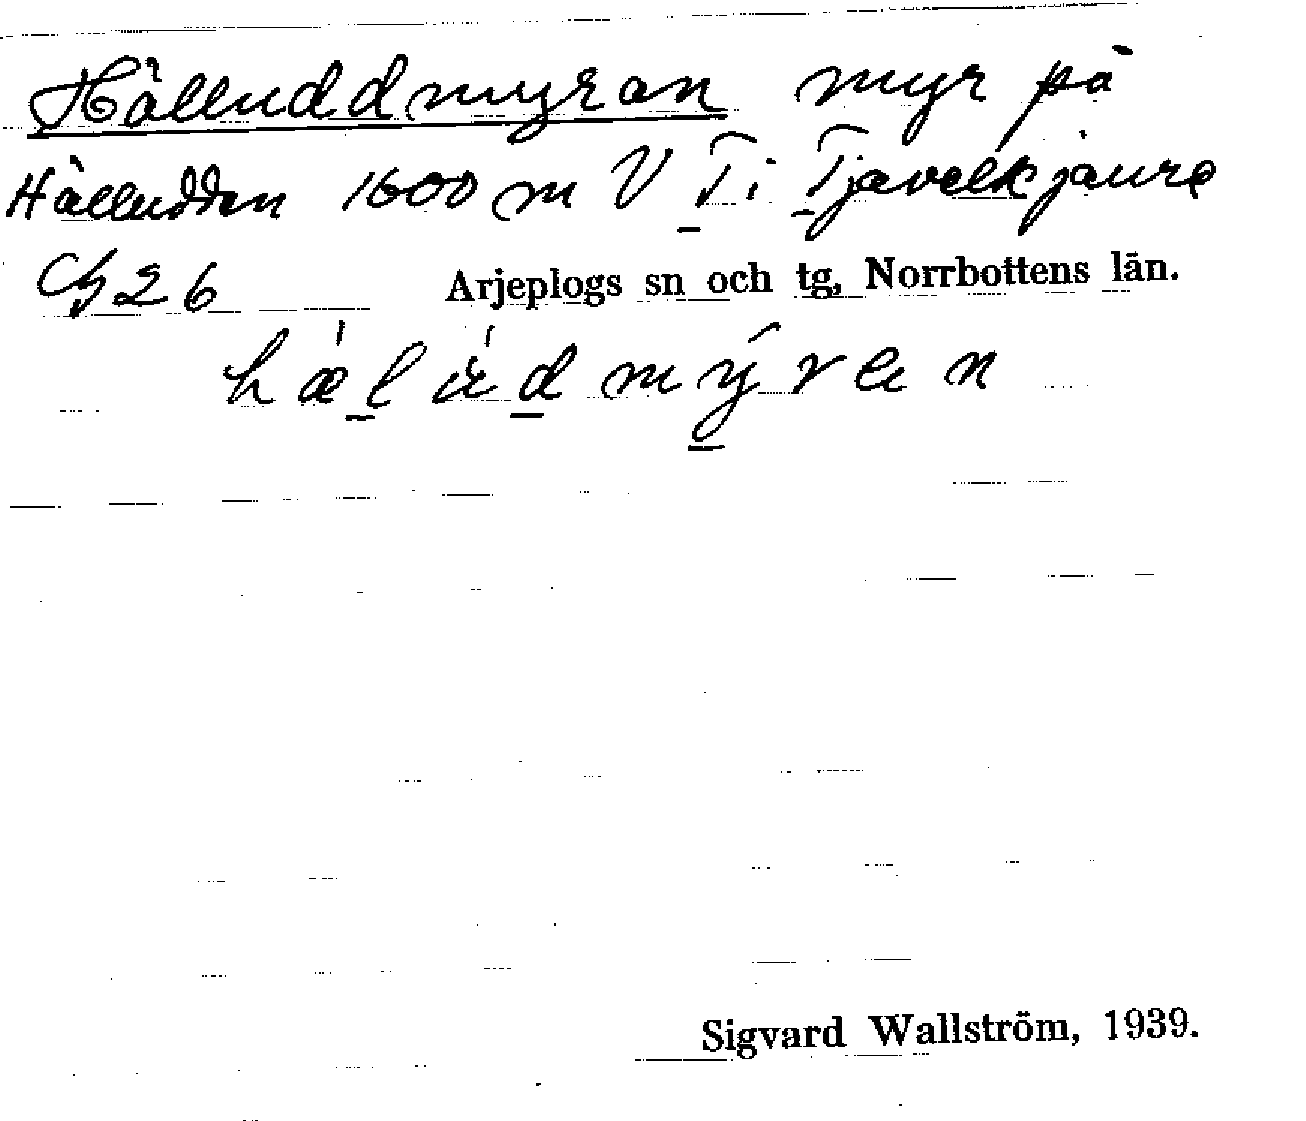 Hålluddmyran myr på
Hålludden 1600 m V Ti Tjavelkjaure
26 Arjeplogs sn och tg, Norrbottens län.
Sigvard Wallström, 1939.